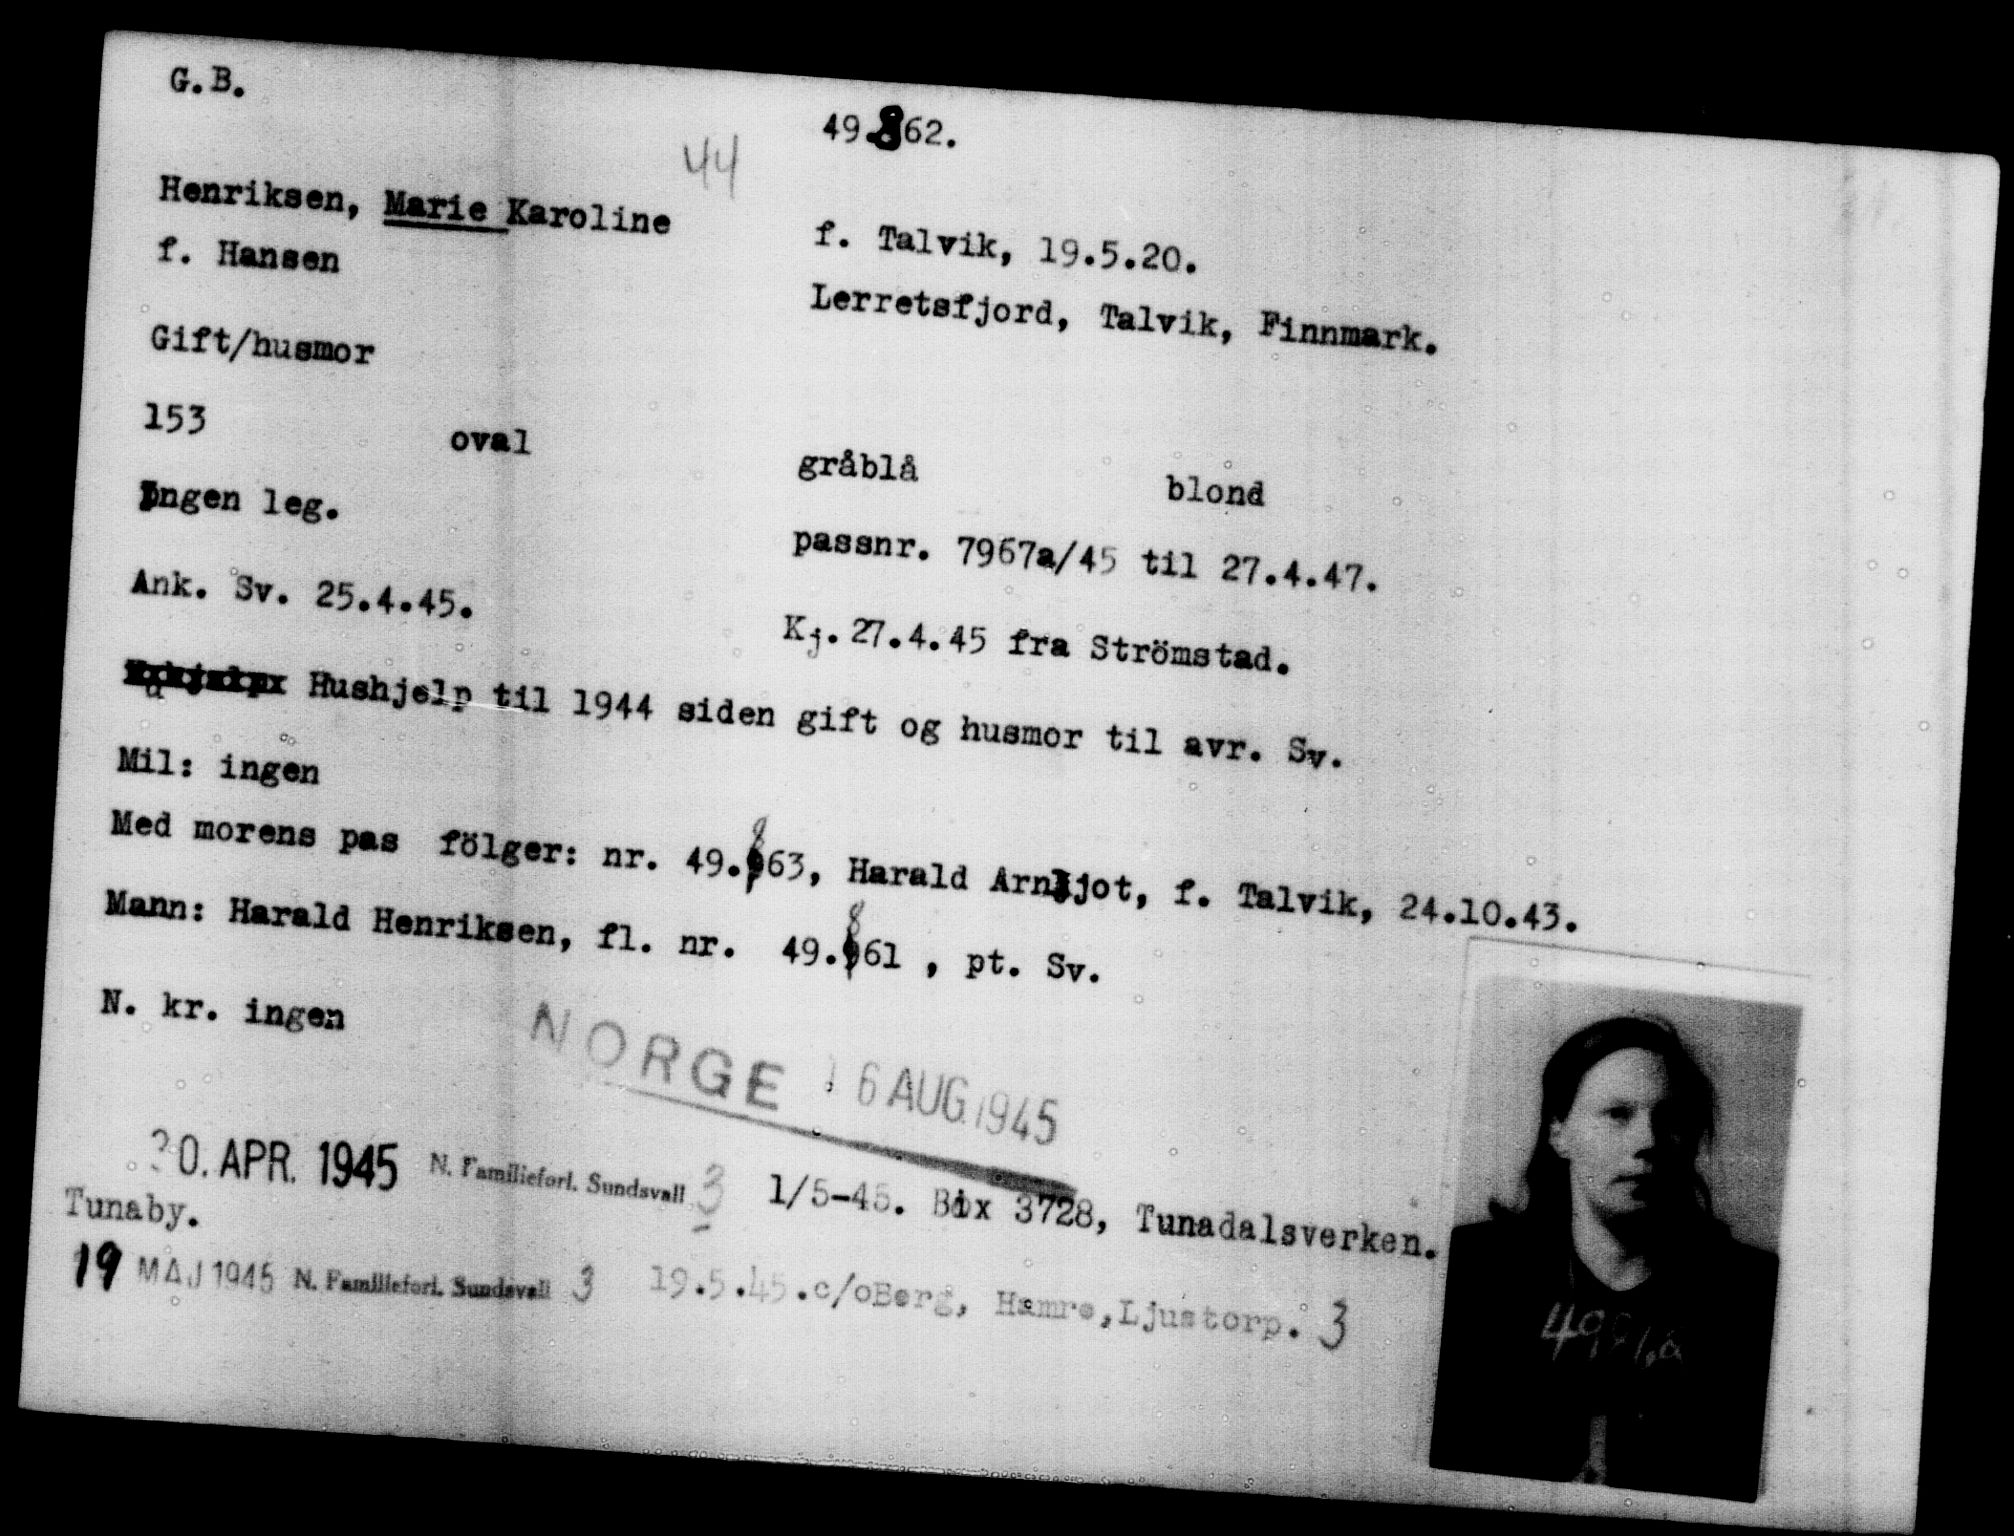 G.B.
49.862.
44
Henriksen, Marie Karoline
f. Talvik, 19.5.20.
f. Hansen
Lerretsfjord, Talvik, Finnmark.
Gift/husmor
153 oval gråblå blond
Ingen leg.
passnr. 7967a/45 til 27.4.47.
Ank. Sv. 25.4.45.
Kj. 27.4.45 fra Strömstad.
Hushjelp til 1944 siden gift og husmor til avr. Sv.
Mil: ingen
Med morens pas fölger: nr. 49.863, Harald Arnljot, f. Talvik, 24.10.43.
Mann: Harald Henriksen, fl. nr. 49.861 , pt. Sv.
N. kr. ingen
NORGE 16 AUG. 1945
30. APR. 1945 N. Familieforl. Sundsvall 3 1/5-45. Box 3728, Tunadalsverken.
Tunaby.
19 MAJ 1945 N. Familieforl. Sundsvall 3 19.5.45.c/oBerg, Hamre,Ljustorp. 3